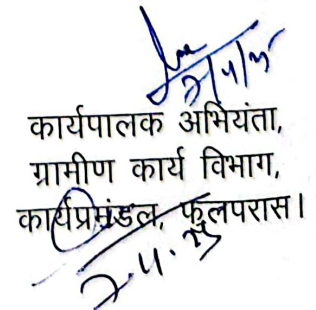 कार्यपालक अभियंता,
ग्रामीण कार्य विभाग,
कार्यप्रमंडल, फुलपरास।